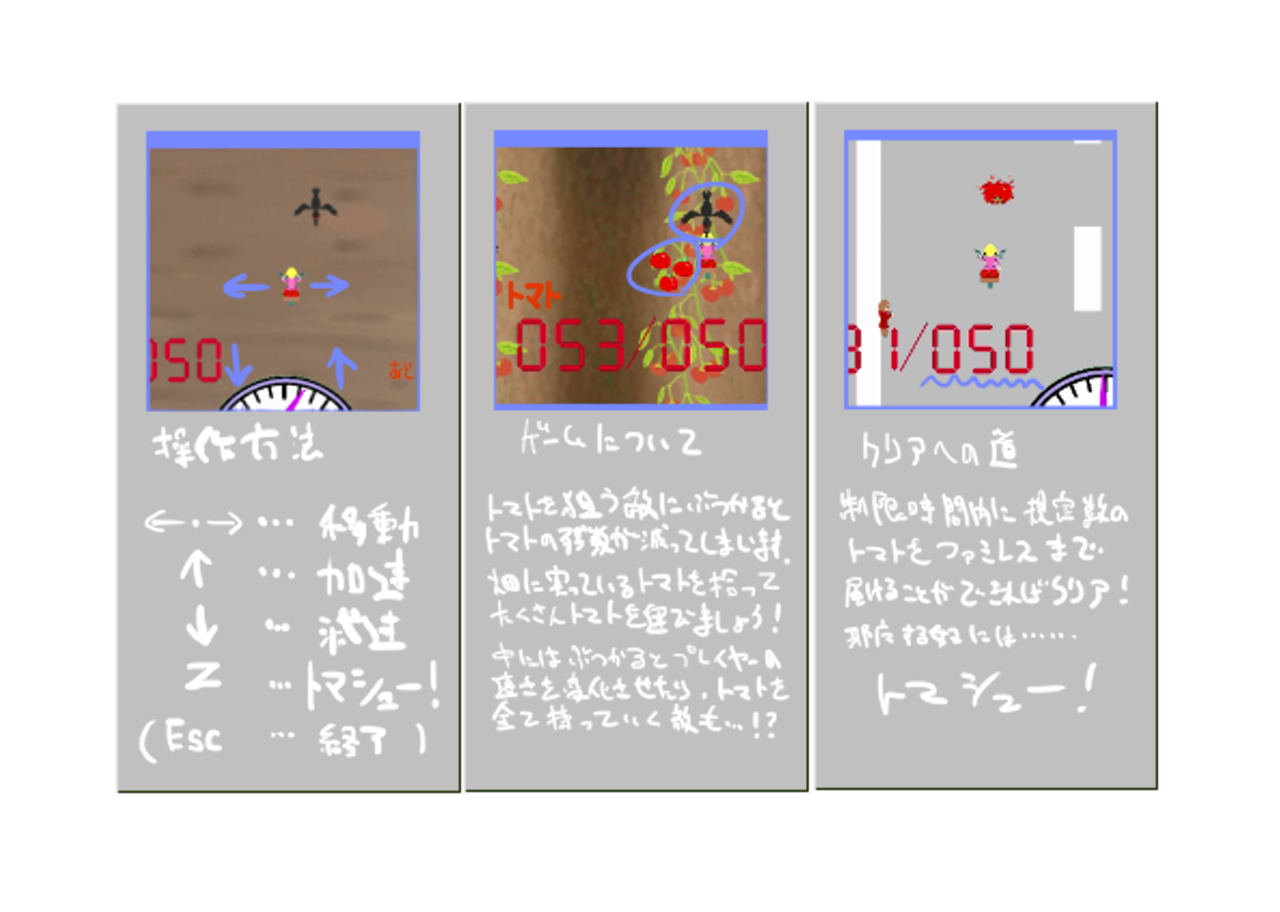 050
あと
操作方法
←・→ … 移動
↑ … 加速
↓ … 減速
Z … トマシュー!
(Esc … 終了)
トマト
053/050
ゲームについて
トマトを狙う敵にぶつかると
トマトの残数が減ってしまいます.
畑に実っているトマトを拾って
たくさんトマトを運びましょう!
中にはぶつかるとプレイヤーの
速さを変化させたり、トマトを
全て持っていく敵も…!?
31/050
クリアへの道
制限時間内に規定数の
トマトをファミレスまで
届けることができればクリア!
邪魔する奴には……
トマシュー!